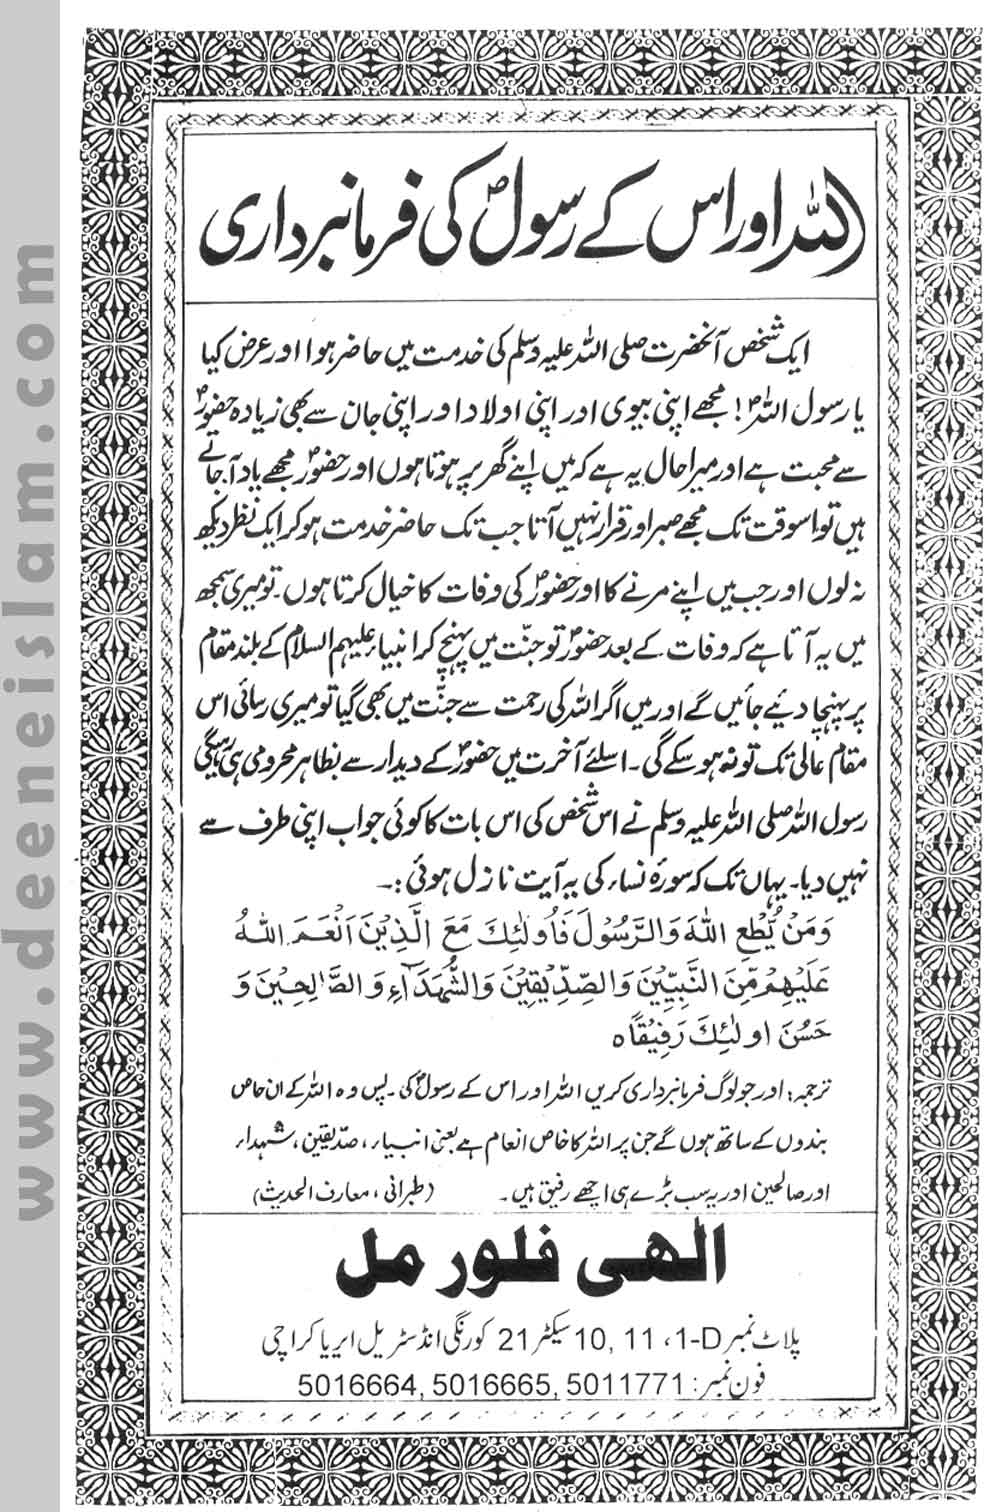 اللہ اور اس کے رسولؐ کی فرمانبرداری
ایک شخص آنحضرت صلی اللہ علیہ وسلم کی خدمت میں حاضر ہوا اور عرض کیا
یا رسول اللہؐ! مجھے اپنی بیوی اور اپنی اولاد اور اپنی جان سے بھی زیادہ حضورؐ
سے محبت ہے اور میرا حال یہ ہے کہ میں اپنے گھر پر ہوتا ہوں اور حضورؐ مجھے یاد آجاتے
ہیں تو اسوقت تک مجھے صبر اور قرار نہیں آتا جب تک حاضر خدمت ہو کر ایک نظر دیکھ
نہ لوں اور جب میں اپنے مرنے کا اور حضورؐ کی وفات کا خیال کرتا ہوں۔ تو میری سمجھ
میں یہ آتا ہے کہ وفات کے بعد حضورؐ تو جنّت میں پہنچ کر انبیاء علیہم السلام کے بلند مقام
پر پہنچا دیئے جائیں گے اور میں اگر اللہ کی رحمت سے جنّت میں بھی گیا تو میری رسائی اس
مقام عالی تک تو نہ ہو سکے گی۔ اسلئے آخرت میں حضورؐ کے دیدار سے بظاہر محرومی ہی رہیگی
رسول اللہ صلی اللہ علیہ وسلم نے اس شخص کی اس بات کا کوئی جواب اپنی طرف سے
نہیں دیا۔ یہاں تک کہ سورۂ نساء کی یہ آیت نازل ہوئی :۔
وَمَنْ يُّطِعِ اللّٰهَ وَالرَّسُوْلَ فَاُولٰٓئِكَ مَعَ الَّذِيْنَ اَنْعَمَ اللّٰهُ
عَلَيْهِمْ مِّنَ النَّبِيّٖنَ وَالصِّدِّيْقِيْنَ وَالشُّهَدَآءِ وَالصّٰلِحِيْنَ وَ
حَسُنَ اولٰٓئِكَ رَفِيْقًا ه
ترجمہ: اور جو لوگ فرمانبرداری کریں اللہ اور اس کے رسولؐ کی۔ پس وہ اللہ کے ان خاص
بندوں کے ساتھ ہوں گے جن پر اللہ کا خاص انعام ہے یعنی انبیاء، صدّیقین، شہداء
اور صالحین اور یہ سب بڑے ہی اچھے رفیق ہیں۔ (طبرانی، معارف الحدیث)
الٰہی فلور مل
پلاٹ نمبر 1-D، 11, 10 سیکٹر 21 کورنگی انڈسٹریل ایریا کراچی
فون نمبر: 5016664, 5016665, 5011771
www.deeneislam.com